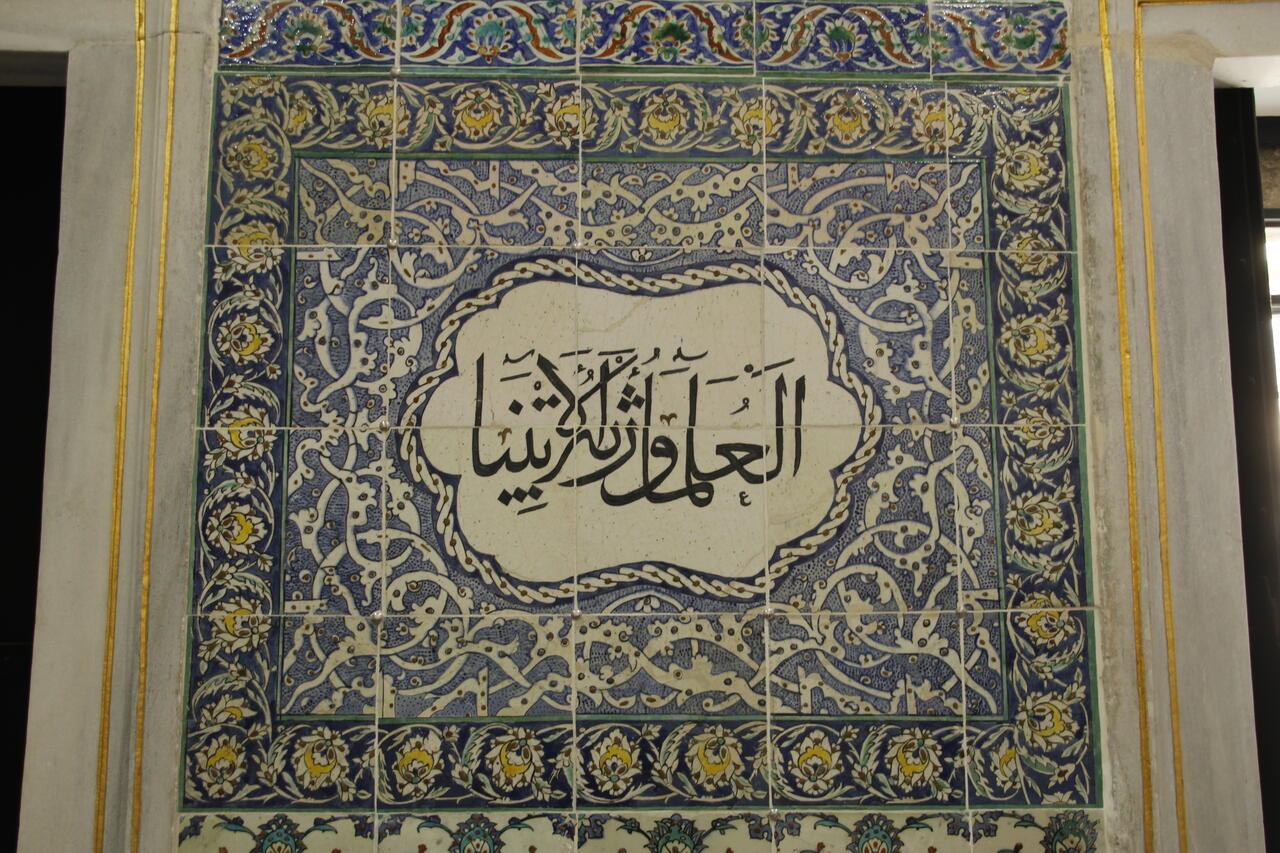 العلماء ورثة الأنبياء